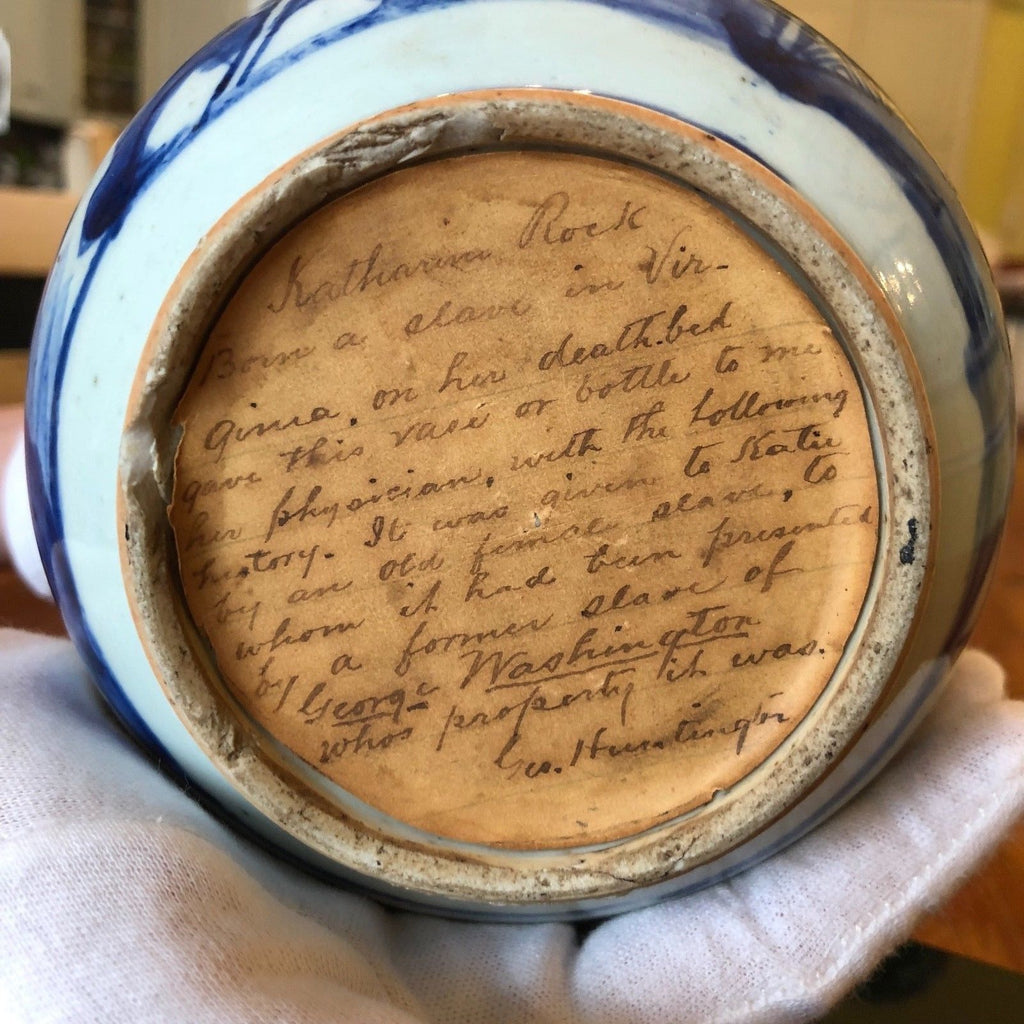 Katharine Rock
Born a slave in Vir-
ginia, on her death.bed
gave this vase or bottle to me
her physician, with the following
history. It was given to Katie
by an old female slave, to
whom it had been presented
by a former slave of
George Washington
whos property it was.
Geo. Huntington